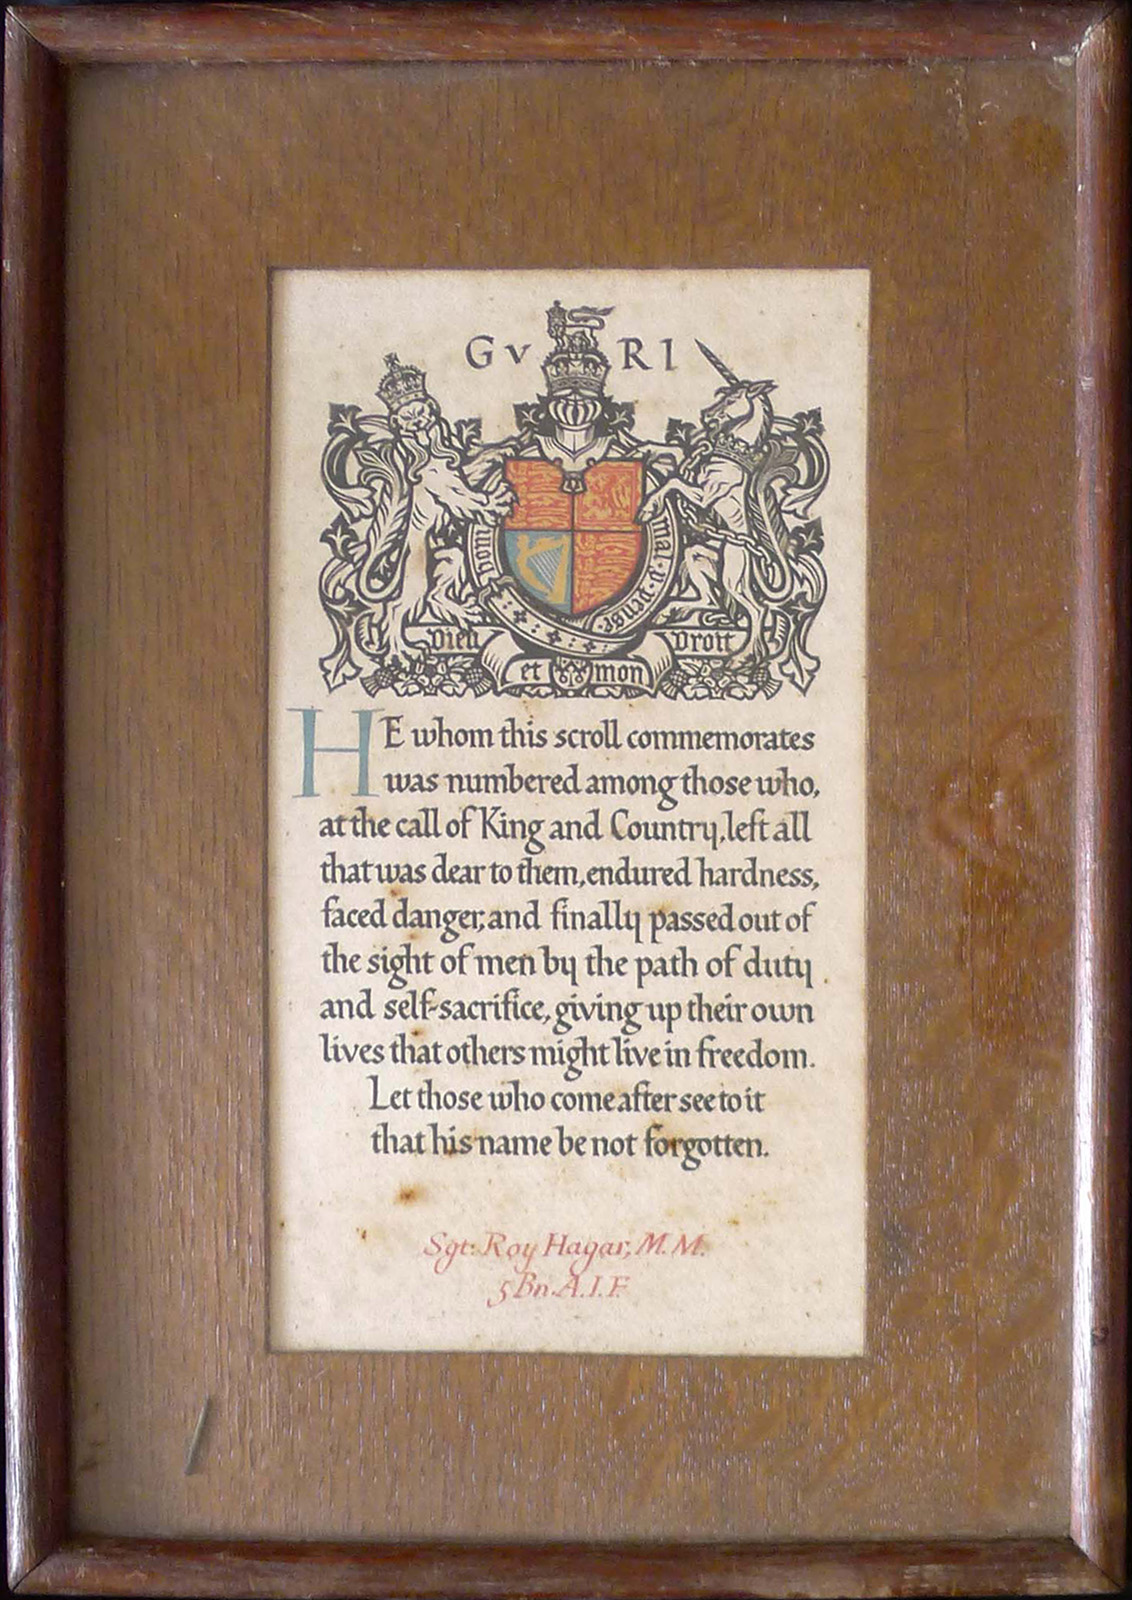 GV RI
honi mal·y·pense
Dieu et mon Droit
HE whom this scroll commemorates
was numbered among those who,
at the call of King and Country, left all
that was dear to them, endured hardness,
faced danger, and finally passed out of
the sight of men by the path of duty
and self-sacrifice, giving up their own
lives that others might live in freedom.
Let those who come after see to it
that his name be not forgotten.
Sgt. Roy Hagar, M.M.
5 Bn. A.I.F.